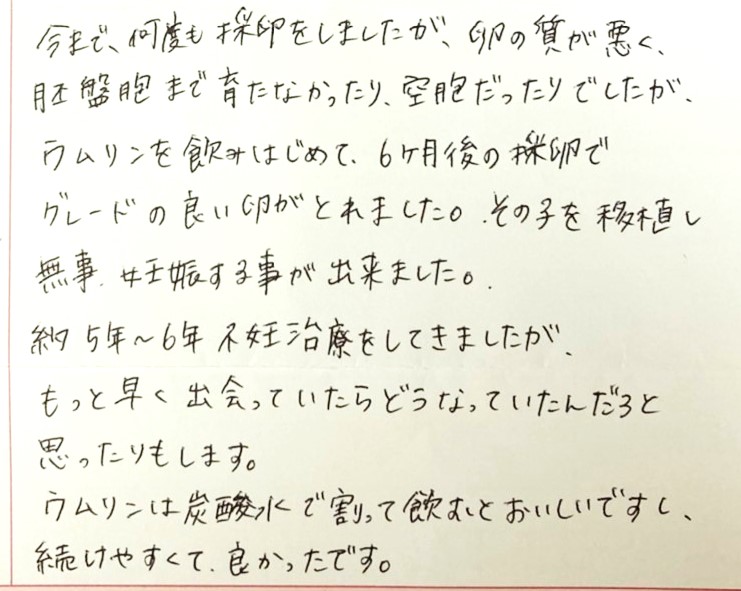 今まで、何度も採卵をしましたが、卵の質が悪く、
胚盤胞まで育たなかったり、空胞だったりでしたが、
ウムリンを飲みはじめて、6ケ月後の採卵で
グレードの良い卵がとれました。その子を移植し
無事、妊娠する事が出来ました。
約5年〜6年不妊治療をしてきましたが、
もっと早く出会っていたらどうなっていたんだろと
思ったりもします。
ウムリンは炭酸水で割って飲むとおいしいですし、
続けやすくて、良かったです。